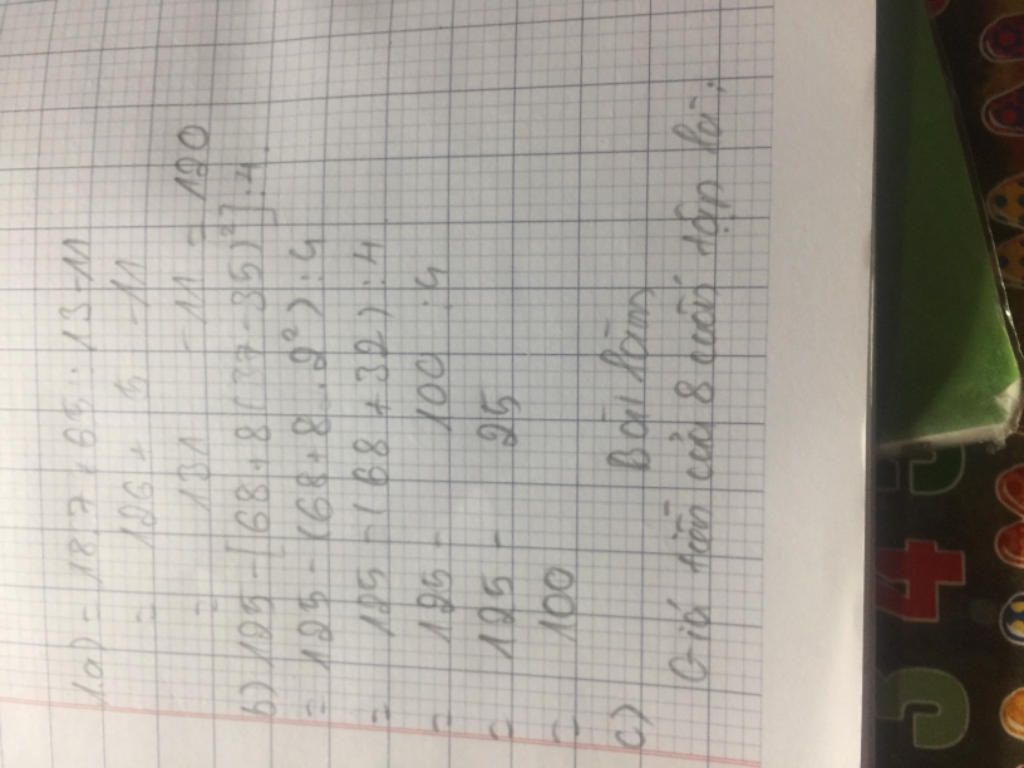 1.a) = 18.7 + 65 : 13 - 11
= 126 + 5 - 11
= 131 - 11 = 120
b) 125 - [68 + 8(37 - 35)²] : 4.
= 125 - (68 + 8 . 2²) : 4
= 125 - (68 + 32) : 4
= 125 - 100 : 4
= 125 - 25
= 100
c) Bài làm
Giá tiền của 8 cuốn tập là:
3 4